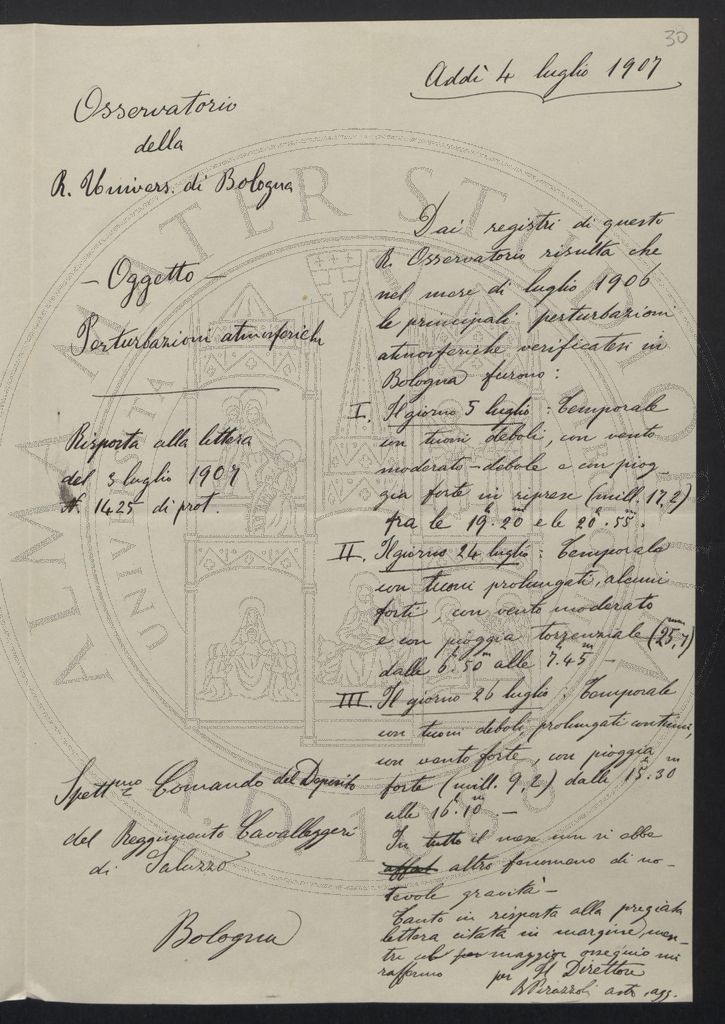 30
Addì 4 luglio 1907
Osservatorio
della
R. Univers. di Bologna
— Oggetto —
Perturbazioni atmosferiche
Risposta alla lettera
del 3 luglio 1907
N. 1425 di prot.
Spett.mo Comando del Deposito
del Reggimento Cavalleggeri
di Saluzzo
Bologna
Dai registri di questo
R. Osservatorio risulta che
nel mese di luglio 1906
le principali perturbazioni
atmosferiche verificatesi in
Bologna furono:
I. Il giorno 5 luglio: Temporale
con tuoni deboli, con vento
moderato-debole e con piog-
gia forte in riprese (mill. 17,2)
fra le 19h.20m e le 20h.55m.
II. Il giorno 24 luglio: Temporale
con tuoni prolungati, alcuni
forti, con vento moderato
e con pioggia torrenziale (25,7mm)
dalle 6h.50m alle 7h.45m —
III. Il giorno 26 luglio: Temporale
con tuoni deboli prolungati continui,
con vento forte, con pioggia
forte (mill. 9,2) dalle 15h.30m
alle 16h.10m. —
In tutto il mese non si ebbe
altro fenomeno di no-
tevole gravità —
Tanto in risposta alla pregiata
lettera citata in margine, men-
tre col maggior ossequio mi
raffermo
per Il Direttore
B Perazzoli astr. agg.
ALMA MATER STUDIORUM
UNIVERSITA
A.D. 1088